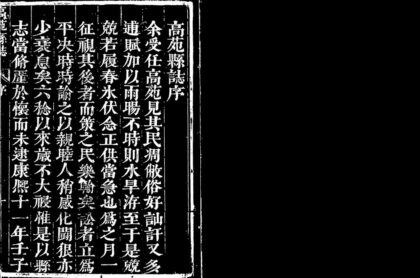 高苑縣誌序
余受任高苑見其民凋敝俗好訕訐又多
逋賦加以雨暘不時則水旱洊至于是兢
兢若履春氷伏念正供當急也爲之月一
征視其後者而策之民樂輸矣訟者立爲
平决時時諭之以親睦人稍感化鬪狠亦
少衰息矣六稔以來歳不大祲惟是以縣
志當脩厪於懷而未逮康熈十一年壬子